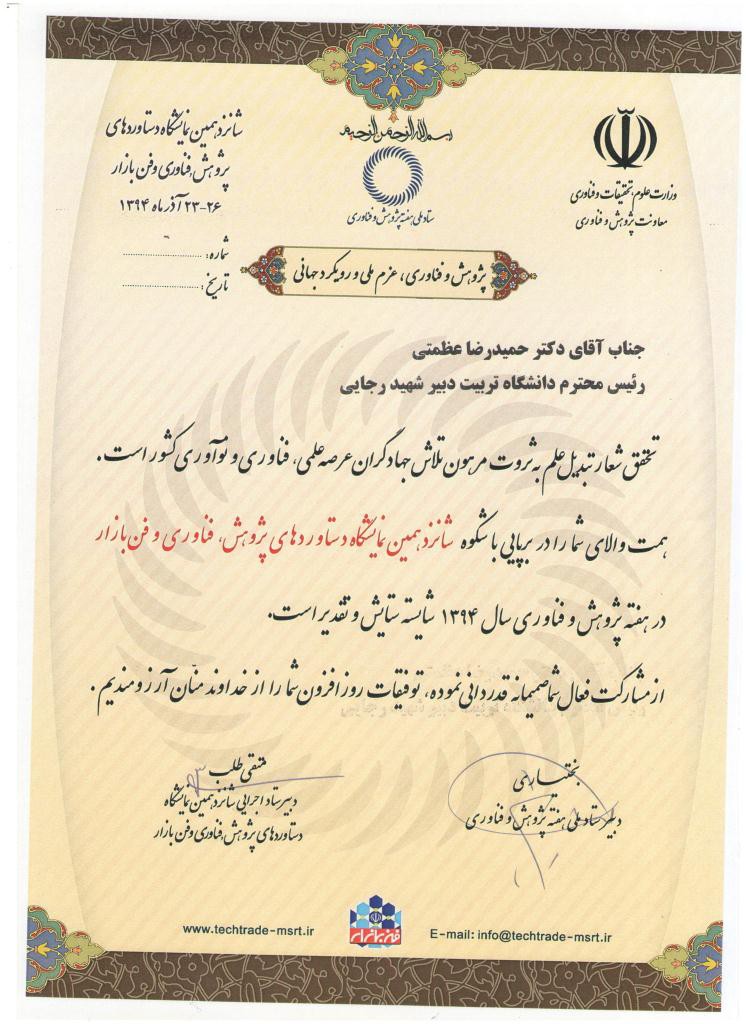 بسم الله الرحمن الرحیم
ستاد ملی هفته پژوهش و فناوری
وزارت علوم، تحقیقات و فناوری
معاونت پژوهش و فناوری
شانزدهمین نمایشگاه دستاوردهای
پژوهش، فناوری و فن بازار
۲۳-۲۶ آذر ماه ۱۳۹۴
شماره: ....................
تاریخ: ....................
پژوهش و فناوری، عزم ملی و رویکرد جهانی
جناب آقای دکتر حمیدرضا عظمتی
رئیس محترم دانشگاه تربیت دبیر شهید رجایی
تحقق شعار تبدیل علم به ثروت مرهون تلاش جهادگران عرصه علمی، فناوری و نوآوری کشور است.
همت والای شما را در برپایی با شکوه شانزدهمین نمایشگاه دستاوردهای پژوهش، فناوری و فن بازار
در هفته پژوهش و فناوری سال ۱۳۹۴ شایسته ستایش و تقدیر است.
از مشارکت فعال شما صمیمانه قدردانی نموده، توفیقات روز افزون شما را از خداوند منان آرزومندیم.
بختیاری
دبیر ستاد ملی هفته پژوهش و فناوری
متقی طلب
دبیر ستاد اجرایی شانزدهمین نمایشگاه
دستاوردهای پژوهش، فناوری و فن بازار
فن بازار
www.techtrade-msrt.ir
E-mail: info@techtrade-msrt.ir